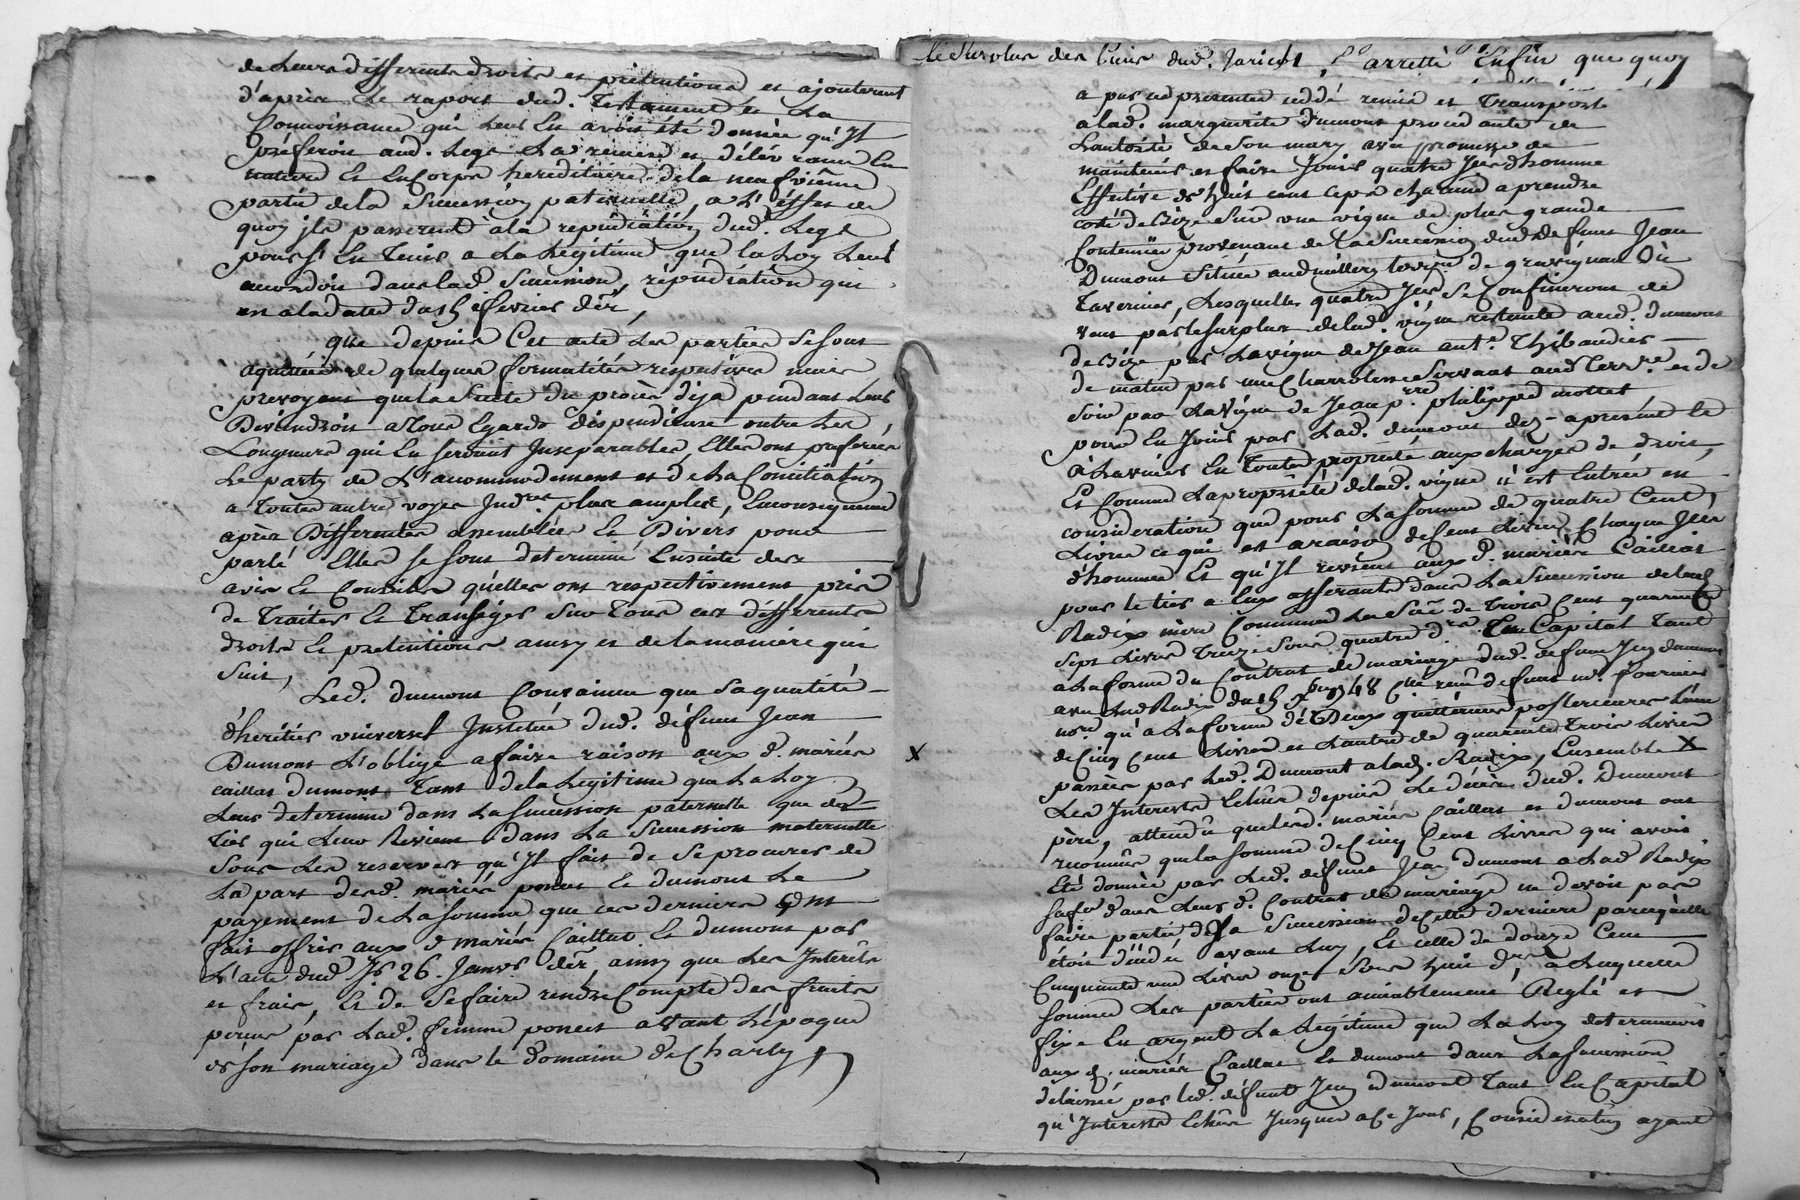 de Leurs differents droits et prétentions et ajouterent
d'après le raport dud. Testament et La
Connoissance qui leur En avoit été donnée qu'Il
préferoit aud. Legs La remise et délivrance En
nature Et En Corps héréditaire de la neufvième
partie de la Succession paternelle, a L'éffet de
quoy ils passerent à la répudiation dud. Legs
pour s'En Tenir a La Légitime que la Loy Leur
accordoit dans lad. Succession, répudiation qui
en a la datte du fevrier dér,
que depuis Cet acte Les parties Se sont
aquittées de quelques formalités respectives mais
prevoyant que la Suite du procès dija pendant Leur
Deviendroit a Tous Egards dispendieuse outre Les
Longueurs qui En seroient Inseparables, Elles ont préferés
Le party de L'accommodement et de La Conciliation
a Toutes autre voyes Judres plus amples, En consequence
après Differentes assemblées Et Divers pour
parlé Elles se sont determiné Ensuite des
avis Et Conseils qu'elles ont respectivement pris
de Traiter Et Transiger Sur Tous ces differents
droits Et prétentions ainsy et de la manière qui
Suit,
Led. dumont Convaincu que Sa qualité
d'héritier universel Institué dud. défunt Jean
Dumont L'oblige a faire raison aux d. mariés
caillat dumont Tant de la Légitime que La Loy
Leur determine dans La Succession paternelle que du
Tiers qui Leur Revient dans La Succession maternelle
Sous Les reserves qu'Il fait de Se procurer de
La part desd. mariés poncet Et dumont Le
payement de La somme que ces derniers ont
fait offrir aux d mariés Caillat Et dumont par
L'acte dud. Jr 26. Janvr dér, ainsy que Les Interêts
et frais, Et de Se faire rendre Compte des fruits
percus par Lad. femme poncet avant L'époque
de son mariage dans le domaine de Charly
Le Surplus des Cuirs dud. , arretté Enfin que quoy
a par cd presentes cedé remis et Transporté
a lad. marguerite dumont procedante de
L'autorité de Son mary avec promesse de
maintenir et faire Jouir quatre Jrées d'homme
Effective de huit cent ceps chacune a prendre
coté de Bize Sur une vigne de plus grande
Contenüe provenant de La Succession dud. défunt Jean
Dumont Située aud millery territoire de gravignan Ou
Tavernier, Lesquelles quatre Jrées Se Confineront de
vent par le surplus de lad. vigne restante aud. dumont
de Bize par La vigne de Jean ant.e Thibaudier
de matin par une Charriere Servant aud Terrre et de
Soir par La Vigne de Jean p.rre philippe mottet
pour En Jouir par Lad. dumont dez-apresent et
à L'avenir En Toute propriété aux charges de droit,
Et Comme La propriété de lad. vigne n'est Entrée en
consideration que pour La somme de quatre Cent
Livres ce qui est a raison de Cent Livres Chaque Jrée
d'homme Et qu'Il revient aux d. mariés Caillat
pour le tier a Eux afferante dans La Succession de lad.
Radix mère Commune La Sme de Trois Cent quarante
Sept Livres Treize Sous quatre d.rs En Capital Tant
a La forme du Contrat de mariage dud. defunt Jean dumont
avec Lad Radix du 48 Cité reçu defunt me. fournier
nore qu'a La forme de Deux quittances posterieures L'une
de Cinq Cent Livres et L'autre de quarante Trois Livres
passées par Led. Dumont a lad. Radix, Ensemble X
Les Interêts Echus depuis Le décès dud. Dumont
père, attendu que lesd. mariés Caillat et dumont ont
reconnus que la somme de Cinq Cent Livres qui avoit
Eté donnée par Led. défunt Jean dumont a Lad Radix
Sa fe dans Leur d. Contrat de mariage ne devoit pas
faire partie de La Succession de Cette derniere parcequ'elle
etoit décédée avant Luy, Et celle de douze Cent
Cinquante une Livres onze Sous huit d.rs, a Laquelle
Somme Les parties ont amiablement Réglé et
fixé En argent La Légitime que La Loy determinoit
aux d. mariés Caillat Et dumont dans La Succession
délaissée par led. défunt Jean dumont Tant En Capital
qu'Interêts Echus Jusques a Ce Jour, Consideration ayant
X